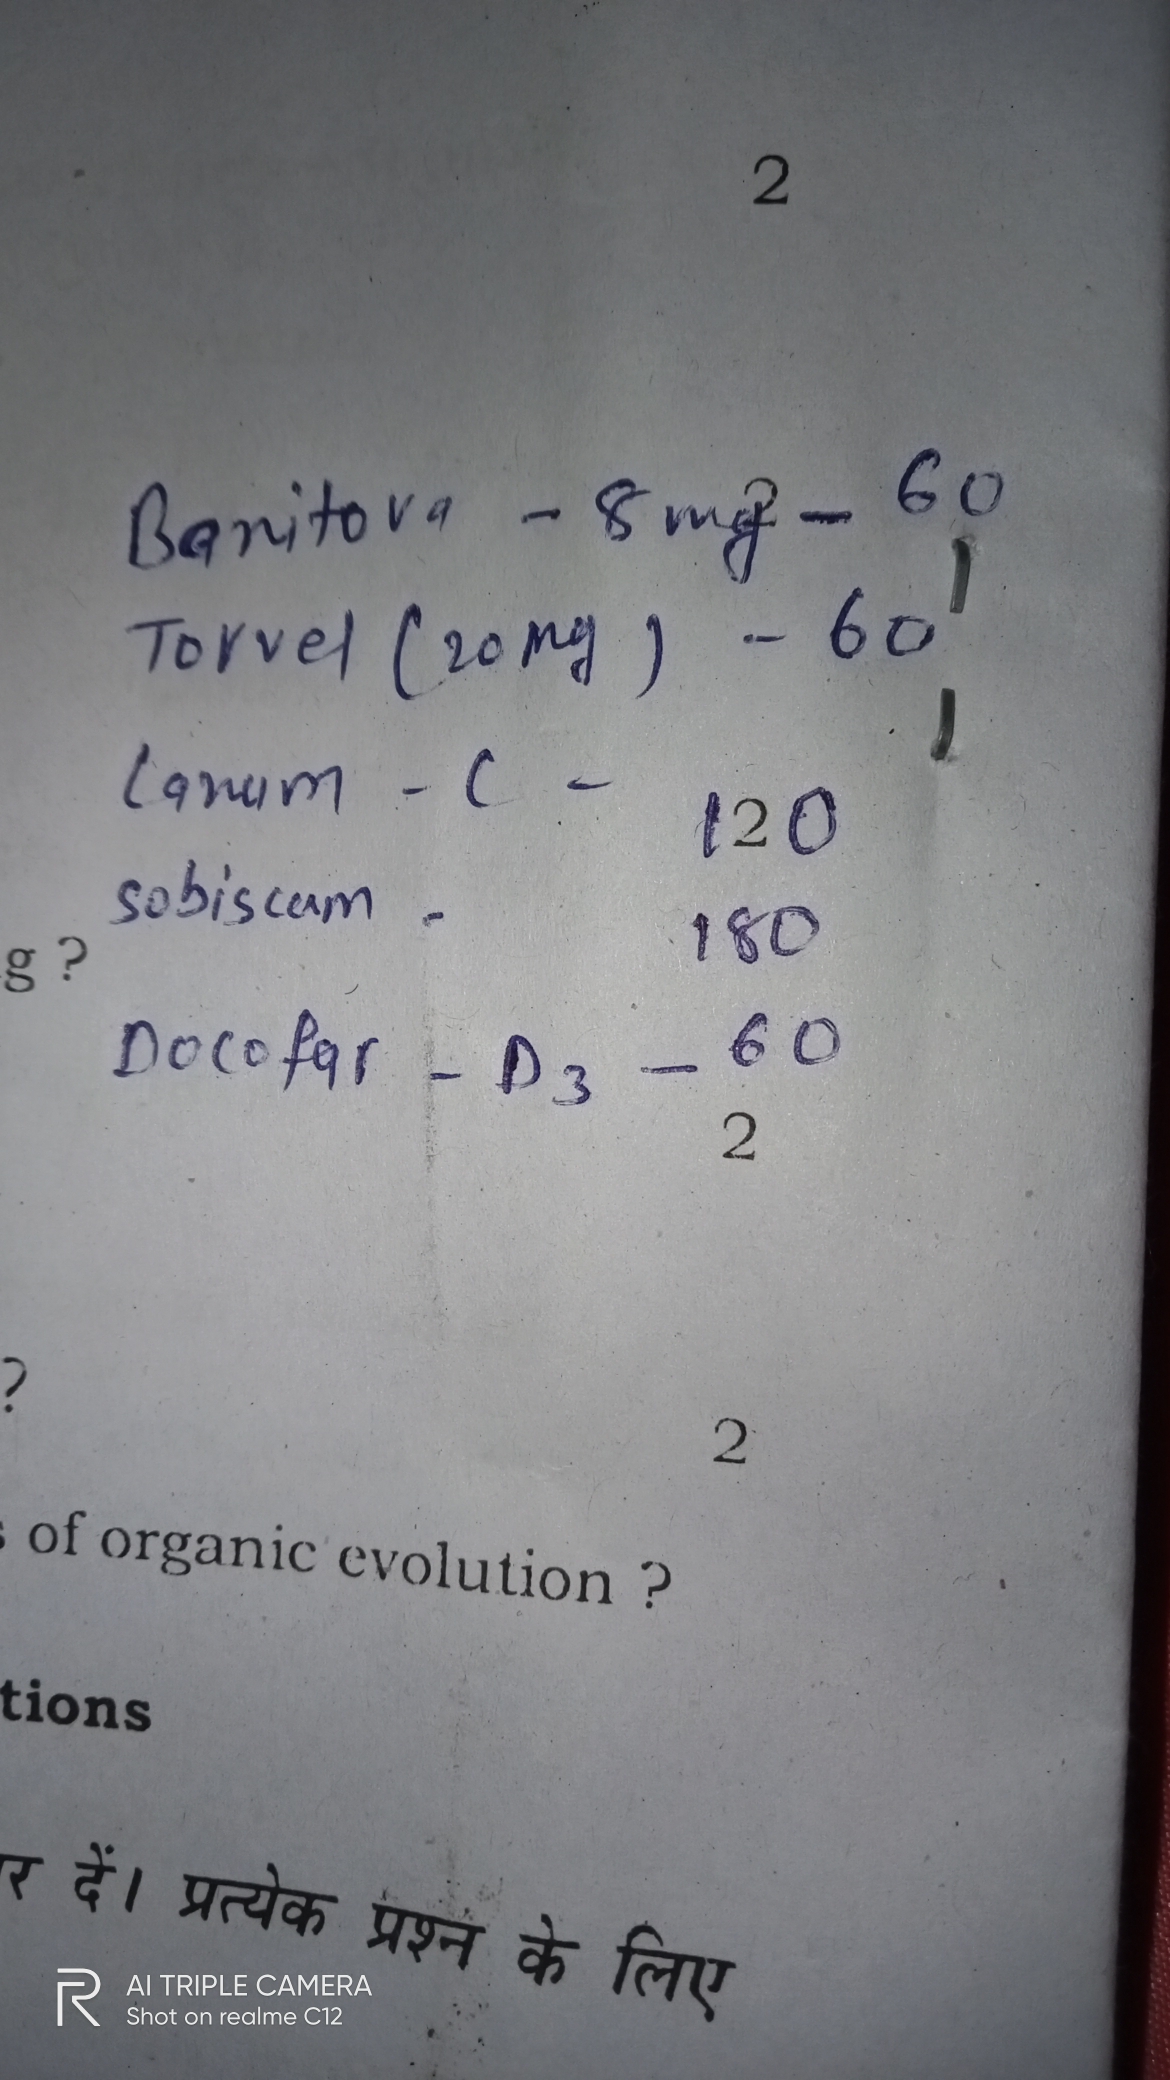 2
Banitova - 8 mg - 60
Torvel (20 mg) - 60
Lanum - C - 120
sobiscum - 180
g ?
Docofar - D3 - 60
2
?
2
s of organic evolution ?
tions
र दें। प्रत्येक प्रश्न के लिए
AI TRIPLE CAMERA
Shot on realme C12